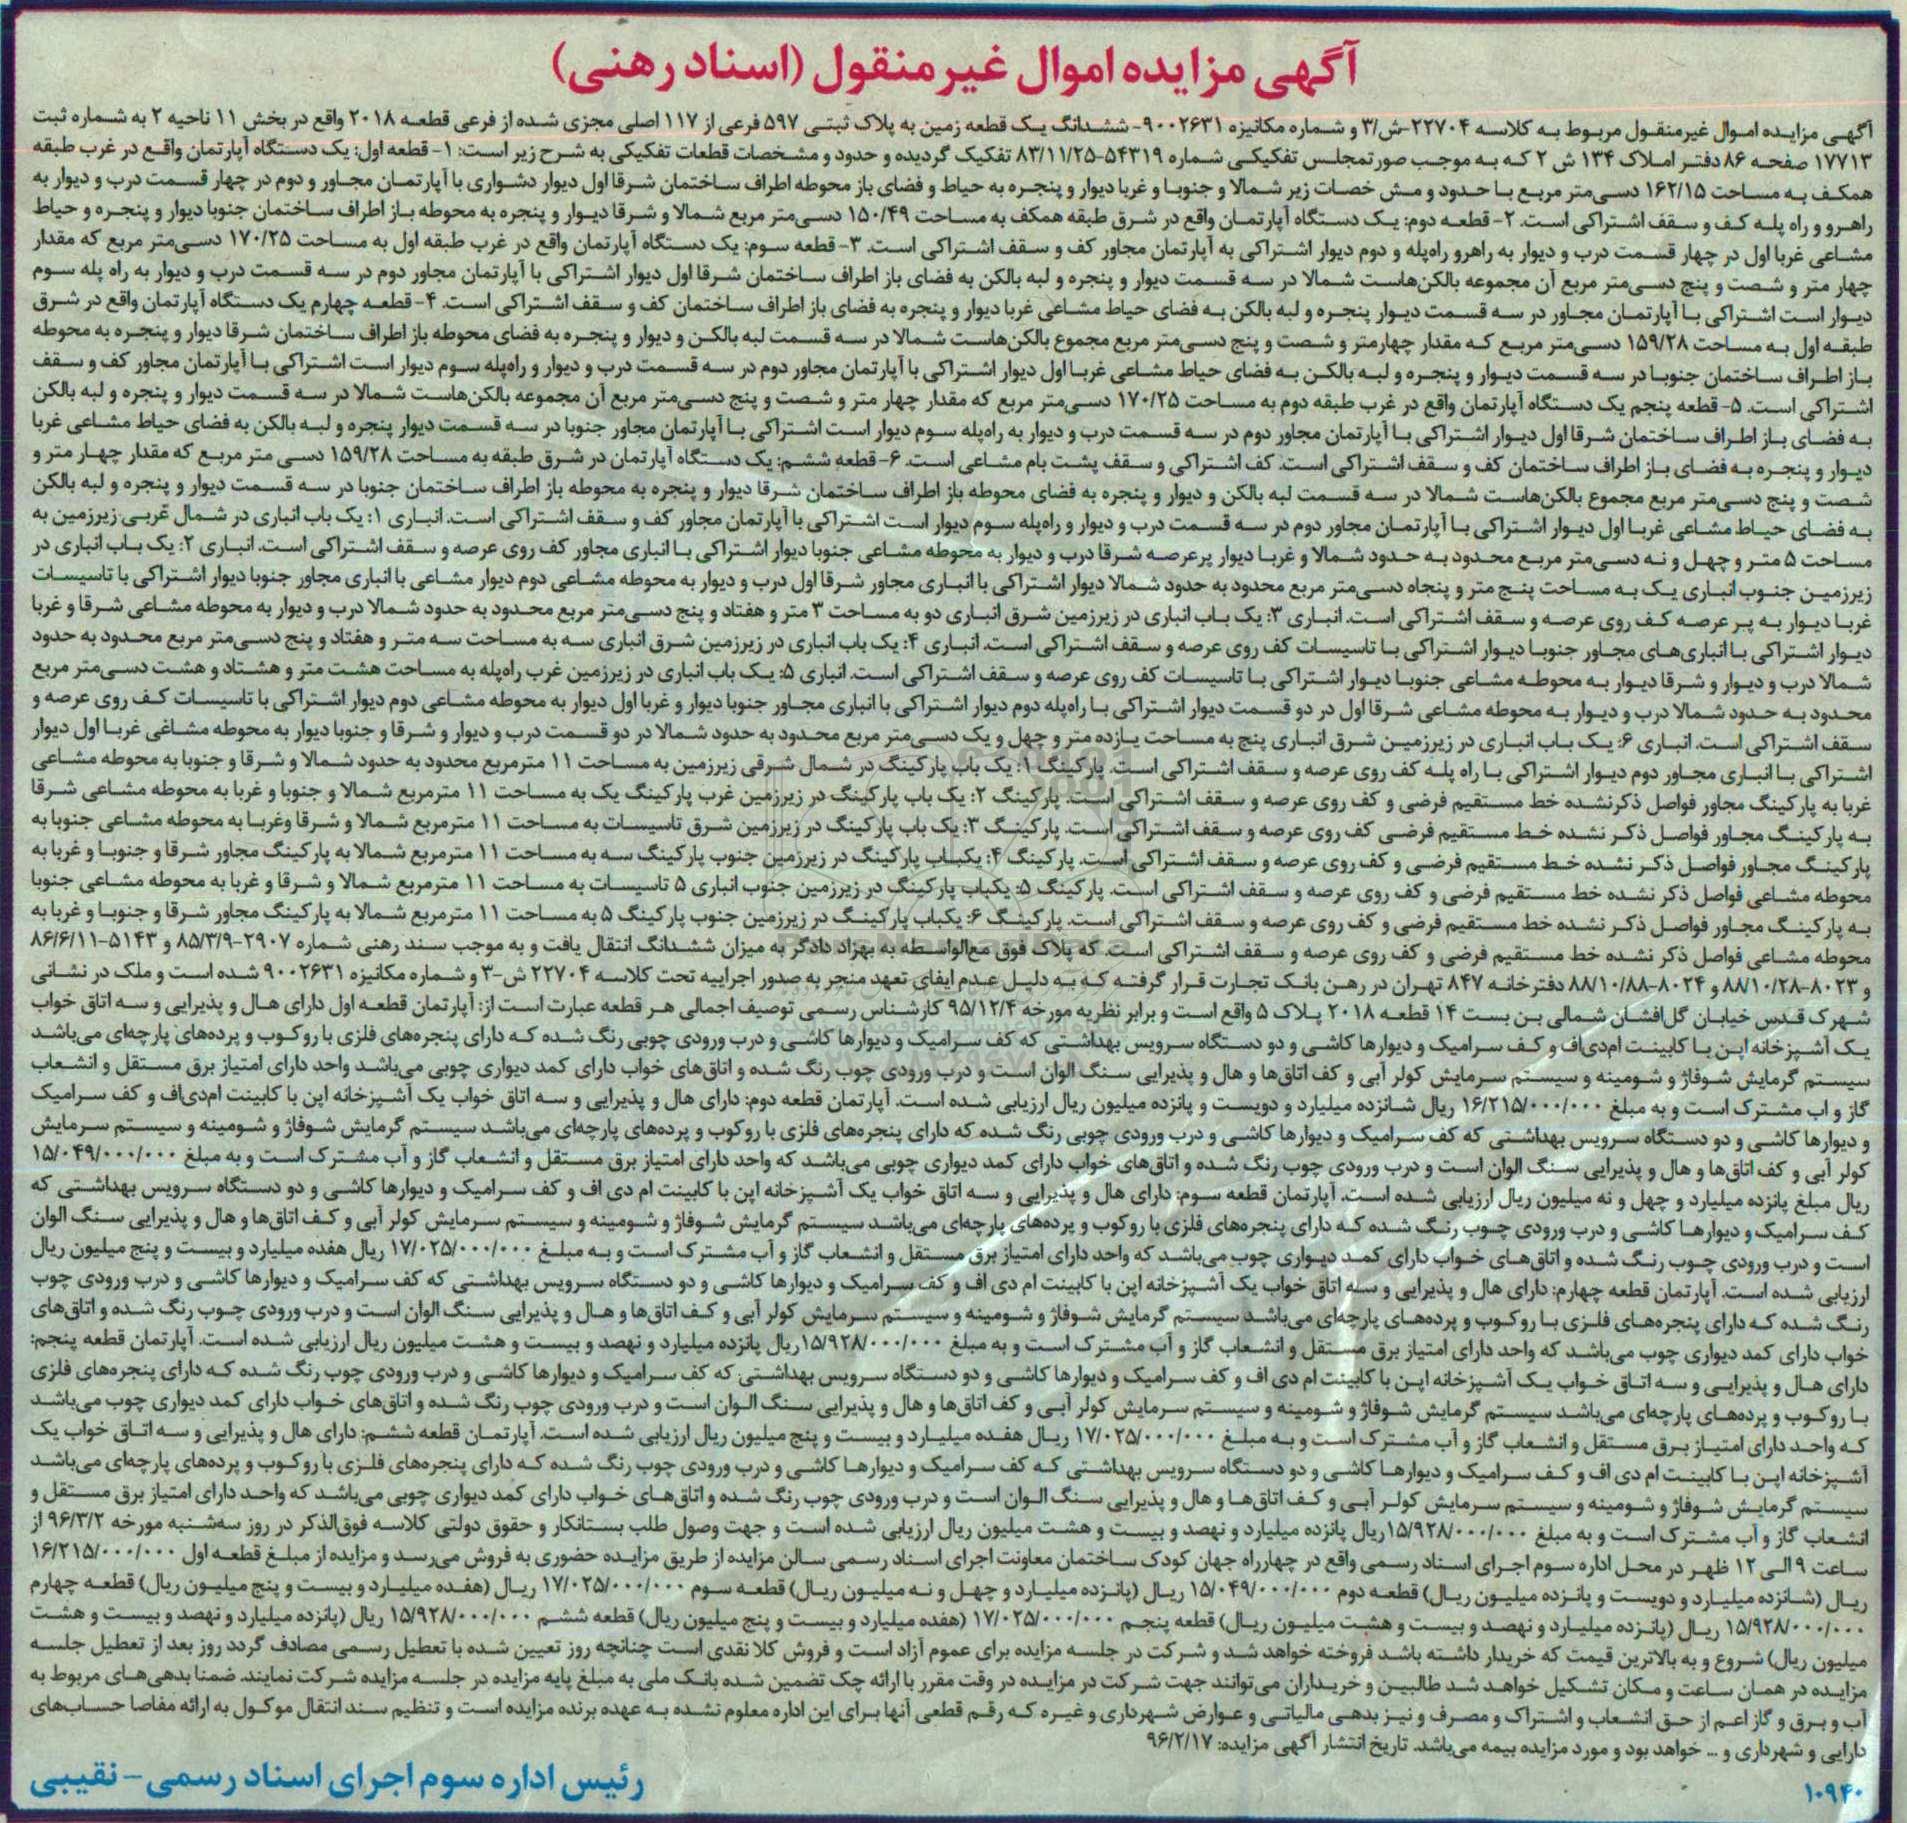 آگهی مزایده اموال غیرمنقول (اسناد رهنی)
آگهی مزایده اموال غیرمنقول مربوط به کلاسه ۲۲۷۰۴-ش/۳ و شماره مکانیزه ۹۰۰۲۶۳۱- ششدانگ یک قطعه زمین به پلاک ثبتی ۵۹۷ فرعی از ۱۱۷ اصلی مجزی شده از فرعی قطعه ۲۰۱۸ واقع در بخش ۱۱ ناحیه ۲ به شماره ثبت
۱۷۷۱۳ صفحه ۸۶ دفتر املاک ۱۳۴ ش ۲ که به موجب صورتمجلس تفکیکی شماره ۵۴۳۱۹-۸۳/۱۱/۲۵ تفکیک گردیده و حدود و مشخصات قطعات تفکیکی به شرح زیر است: ۱- قطعه اول: یک دستگاه آپارتمان واقع در غرب طبقه
همکف به مساحت ۱۶۲/۱۵ دسی‌متر مربع با حدود و مش خصات زیر شمالا و جنوبا و غربا دیوار و پنجره به حیاط و فضای باز محوطه اطراف ساختمان شرقا اول دیوار دشواری با آپارتمان مجاور و دوم در چهار قسمت درب و دیوار به
راهرو و راه پله کف و سقف اشتراکی است. ۲- قطعه دوم: یک دستگاه آپارتمان واقع در شرق طبقه همکف به مساحت ۱۵۰/۴۹ دسی‌متر مربع شمالا و شرقا دیوار و پنجره به محوطه باز اطراف ساختمان جنوبا دیوار و پنجره و حیاط
مشاعی غربا اول در چهار قسمت درب و دیوار به راهرو راه‌پله و دوم دیوار اشتراکی به آپارتمان مجاور کف و سقف اشتراکی است. ۳- قطعه سوم: یک دستگاه آپارتمان واقع در غرب طبقه اول به مساحت ۱۷۰/۲۵ دسی‌متر مربع که مقدار
چهار متر و شصت و پنج دسی‌متر مربع آن مجموعه بالکن‌هاست شمالا در سه قسمت دیوار و پنجره و لبه بالکن به فضای باز اطراف ساختمان شرقا اول دیوار اشتراکی با آپارتمان مجاور دوم در سه قسمت درب و دیوار به راه پله سوم
دیوار است اشتراکی با آپارتمان مجاور در سه قسمت دیوار پنجره و لبه بالکن به فضای حیاط مشاعی غربا دیوار و پنجره به فضای باز اطراف ساختمان کف و سقف اشتراکی است. ۴- قطعه چهارم یک دستگاه آپارتمان واقع در شرق
طبقه اول به مساحت ۱۵۹/۲۸ دسی‌متر مربع که مقدار چهارمتر و شصت و پنج دسی‌متر مربع مجموع بالکن‌هاست شمالا در سه قسمت لبه بالکن و دیوار و پنجره به فضای محوطه باز اطراف ساختمان شرقا دیوار و پنجره به محوطه
باز اطراف ساختمان جنوبا در سه قسمت دیوار و پنجره و لبه بالکن به فضای حیاط مشاعی غربا اول دیوار اشتراکی با آپارتمان مجاور دوم در سه قسمت درب و دیوار و راه‌پله سوم دیوار است اشتراکی با آپارتمان مجاور کف و سقف
اشتراکی است. ۵- قطعه پنجم یک دستگاه آپارتمان واقع در غرب طبقه دوم به مساحت ۱۷۰/۲۵ دسی‌متر مربع که مقدار چهار متر و شصت و پنج دسی‌متر مربع آن مجموعه بالکن‌هاست شمالا در سه قسمت دیوار و پنجره و لبه بالکن
به فضای باز اطراف ساختمان شرقا اول دیوار اشتراکی با آپارتمان مجاور دوم در سه قسمت درب و دیوار به راه‌پله سوم دیوار است اشتراکی با آپارتمان مجاور جنوبا در سه قسمت دیوار پنجره و لبه بالکن به فضای حیاط مشاعی غربا
دیوار و پنجره به فضای باز اطراف ساختمان کف و سقف اشتراکی است. کف اشتراکی و سقف پشت بام مشاعی است. ۶- قطعه ششم: یک دستگاه آپارتمان در شرق طبقه به مساحت ۱۵۹/۲۸ دسی متر مربع که مقدار چهار متر و
شصت و پنج دسی‌متر مربع مجموع بالکن‌هاست شمالا در سه قسمت لبه بالکن و دیوار و پنجره به فضای محوطه باز اطراف ساختمان شرقا دیوار و پنجره به محوطه باز اطراف ساختمان جنوبا در سه قسمت دیوار و پنجره و لبه بالکن
به فضای حیاط مشاعی غربا اول دیوار اشتراکی با آپارتمان مجاور دوم در سه قسمت درب و دیوار و راه‌پله سوم دیوار است اشتراکی با آپارتمان مجاور کف و سقف اشتراکی است. انباری ۱: یک باب انباری در شمال غربی زیرزمین به
مساحت ۵ متر و چهل و نه دسی‌متر مربع محدود به حدود شمالا و غربا دیوار پرعرصه شرقا درب و دیوار به محوطه مشاعی جنوبا دیوار اشتراکی با انباری مجاور کف روی عرصه و سقف اشتراکی است. انباری ۲: یک باب انباری در
زیرزمین جنوب انباری یک به مساحت پنج متر و پنجاه دسی‌متر مربع محدود به حدود شمالا دیوار اشتراکی با انباری مجاور شرقا اول درب و دیوار به محوطه مشاعی دوم دیوار مشاعی با انباری مجاور جنوبا دیوار اشتراکی با تاسیسات
غربا دیوار به پر عرصه کف روی عرصه و سقف اشتراکی است. انباری ۳: یک باب انباری در زیرزمین شرق انباری دو به مساحت ۳ متر و هفتاد و پنج دسی‌متر مربع محدود به حدود شمالا درب و دیوار به محوطه مشاعی شرقا و غربا
دیوار اشتراکی با انباری‌های مجاور جنوبا دیوار اشتراکی با تاسیسات کف روی عرصه و سقف اشتراکی است. انباری ۴: یک باب انباری در زیرزمین شرق انباری سه به مساحت سه متر و هفتاد و پنج دسی‌متر مربع محدود به حدود
شمالا درب و دیوار و شرقا دیوار به محوطه مشاعی جنوبا دیوار اشتراکی با تاسیسات کف روی عرصه و سقف اشتراکی است. انباری ۵: یک باب انباری در زیرزمین غرب راه‌پله به مساحت هشت متر و هشتاد و هشت دسی‌متر مربع
محدود به حدود شمالا درب و دیوار به محوطه مشاعی شرقا اول در دو قسمت دیوار اشتراکی با راه‌پله دوم دیوار اشتراکی با انباری مجاور جنوبا دیوار و غربا اول دیوار به محوطه مشاعی دوم دیوار اشتراکی با تاسیسات کف روی عرصه و
سقف اشتراکی است. انباری ۶: یک باب انباری در زیرزمین شرق انباری پنج به مساحت یازده متر و چهل و یک دسی‌متر مربع محدود به حدود شمالا در دو قسمت درب و دیوار و شرقا و جنوبا دیوار به محوطه مشاعی غربا اول دیوار
اشتراکی با انباری مجاور دوم دیوار اشتراکی با راه پله کف روی عرصه و سقف اشتراکی است. پارکینگ ۱: یک باب پارکینگ در شمال شرقی زیرزمین به مساحت ۱۱ مترمربع محدود به حدود شمالا و شرقا و جنوبا به محوطه مشاعی
غربا به پارکینگ مجاور فواصل ذکرنشده خط مستقیم فرضی و کف روی عرصه و سقف اشتراکی است. پارکینگ ۲: یک باب پارکینگ در زیرزمین غرب پارکینگ یک به مساحت ۱۱ مترمربع شمالا و جنوبا و غربا به محوطه مشاعی شرقا
به پارکینگ مجاور فواصل ذکر نشده خط مستقیم فرضی کف روی عرصه و سقف اشتراکی است. پارکینگ ۳: یک باب پارکینگ در زیرزمین شرق تاسیسات به مساحت ۱۱ مترمربع شمالا و شرقا وغربا به محوطه مشاعی جنوبا به
پارکینگ مجاور فواصل ذکر نشده خط مستقیم فرضی و کف روی عرصه و سقف اشتراکی است. پارکینگ ۴: یکباب پارکینگ در زیرزمین جنوب پارکینگ سه به مساحت ۱۱ مترمربع شمالا به پارکینگ مجاور شرقا و جنوبا و غربا به
محوطه مشاعی فواصل ذکر نشده خط مستقیم فرضی و کف روی عرصه و سقف اشتراکی است. پارکینگ ۵: یکباب پارکینگ در زیرزمین جنوب انباری ۵ تاسیسات به مساحت ۱۱ مترمربع شمالا و شرقا و غربا به محوطه مشاعی جنوبا
به پارکینگ مجاور فواصل ذکر نشده خط مستقیم فرضی و کف روی عرصه و سقف اشتراکی است. پارکینگ ۶: یکباب پارکینگ در زیرزمین جنوب پارکینگ ۵ به مساحت ۱۱ مترمربع شمالا به پارکینگ مجاور شرقا و جنوبا و غربا به
محوطه مشاعی فواصل ذکر نشده خط مستقیم فرضی و کف روی عرصه و سقف اشتراکی است. که پلاک فوق مع‌الواسطه به بهزاد دادگر به میزان ششدانگ انتقال یافت و به موجب سند رهنی شماره ۲۹۰۷-۸۵/۳/۹ و ۵۱۴۳-۸۶/۶/۱۱
و ۸۰۲۳-۸۸/۱۰/۲۸ و ۸۰۲۴-۸۸/۱۰/۸۸ دفترخانه ۸۴۷ تهران در رهن بانک تجارت قرار گرفته که به دلیل عدم ایفای تعهد منجر به صدور اجراییه تحت کلاسه ۲۲۷۰۴ ش-۳ و شماره مکانیزه ۹۰۰۲۶۳۱ شده است و ملک در نشانی
شهرک قدس خیابان گل‌افشان شمالی بن بست ۱۴ قطعه ۲۰۱۸ پلاک ۵ واقع است و برابر نظریه مورخه ۹۵/۱۲/۴ کارشناس رسمی توصیف اجمالی هر قطعه عبارت است از: آپارتمان قطعه اول دارای هال و پذیرایی و سه اتاق خواب
یک آشپزخانه اپن با کابینت ام‌دی‌اف و کف سرامیک و دیوارها کاشی و دو دستگاه سرویس بهداشتی که کف سرامیک و دیوارها کاشی و درب ورودی چوبی رنگ شده که دارای پنجره‌های فلزی با روکوب و پرده‌های پارچه‌ای می‌باشد
سیستم گرمایش شوفاژ و شومینه و سیستم سرمایش کولر آبی و کف اتاق‌ها و هال و پذیرایی سنگ الوان است و درب ورودی چوب رنگ شده و اتاق‌های خواب دارای کمد دیواری چوبی می‌باشد واحد دارای امتیاز برق مستقل و انشعاب
گاز و اب مشترک است و به مبلغ ۱۶/۲۱۵/۰۰۰/۰۰۰ ریال شانزده میلیارد و دویست و پانزده میلیون ریال ارزیابی شده است. آپارتمان قطعه دوم: دارای هال و پذیرایی و سه اتاق خواب یک آشپزخانه اپن با کابینت ام‌دی‌اف و کف سرامیک
و دیوارها کاشی و دو دستگاه سرویس بهداشتی که کف سرامیک و دیوارها کاشی و درب ورودی چوبی رنگ شده که دارای پنجره‌های فلزی با روکوب و پرده‌های پارچه‌ای می‌باشد سیستم گرمایش شوفاژ و شومینه و سیستم سرمایش
کولر آبی و کف اتاق‌ها و هال و پذیرایی سنگ الوان است و درب ورودی چوب رنگ شده و اتاق‌های خواب دارای کمد دیواری چوبی می‌باشد که واحد دارای امتیاز برق مستقل و انشعاب گاز و آب مشترک است و به مبلغ ۱۵/۰۴۹/۰۰۰/۰۰۰
ریال مبلغ پانزده میلیارد و چهل و نه میلیون ریال ارزیابی شده است. آپارتمان قطعه سوم: دارای هال و پذیرایی و سه اتاق خواب یک آشپزخانه اپن با کابینت ام دی اف و کف سرامیک و دیوارها کاشی و دو دستگاه سرویس بهداشتی که
کف سرامیک و دیوارها کاشی و درب ورودی چوب رنگ شده که دارای پنجره‌های فلزی با روکوب و پرده‌های پارچه‌ای می‌باشد سیستم گرمایش شوفاژ و شومینه و سیستم سرمایش کولر آبی و کف اتاق‌ها و هال و پذیرایی سنگ الوان
است و درب ورودی چوب رنگ شده و اتاق‌های خواب دارای کمد دیواری چوب می‌باشد که واحد دارای امتیاز برق مستقل و انشعاب گاز و آب مشترک است و به مبلغ ۱۷/۰۲۵/۰۰۰/۰۰۰ ریال هفده میلیارد و بیست و پنج میلیون ریال
ارزیابی شده است. آپارتمان قطعه چهارم: دارای هال و پذیرایی و سه اتاق خواب یک آشپزخانه اپن با کابینت ام دی اف و کف سرامیک و دیوارها کاشی و دو دستگاه سرویس بهداشتی که کف سرامیک و دیوارها کاشی و درب ورودی چوب
رنگ شده که دارای پنجره‌های فلزی با روکوب و پرده‌های پارچه‌ای می‌باشد سیستم گرمایش شوفاژ و شومینه و سیستم سرمایش کولر آبی و کف اتاق‌ها و هال و پذیرایی سنگ الوان است و درب ورودی چوب رنگ شده و اتاق‌های
خواب دارای کمد دیواری چوب می‌باشد که واحد دارای امتیاز برق مستقل و انشعاب گاز و آب مشترک است و به مبلغ ۱۵/۹۲۸/۰۰۰/۰۰۰ریال پانزده میلیارد و نهصد و بیست و هشت میلیون ریال ارزیابی شده است. آپارتمان قطعه پنجم:
دارای هال و پذیرایی و سه اتاق خواب یک آشپزخانه اپن با کابینت ام دی اف و کف سرامیک و دیوارها کاشی و دو دستگاه سرویس بهداشتی که کف سرامیک و دیوارها کاشی و درب ورودی چوب رنگ شده که دارای پنجره‌های فلزی
با روکوب و پرده‌های پارچه‌ای می‌باشد سیستم گرمایش شوفاژ و شومینه و سیستم سرمایش کولر آبی و کف اتاق‌ها و هال و پذیرایی سنگ الوان است و درب ورودی چوب رنگ شده و اتاق‌های خواب دارای کمد دیواری چوب می‌باشد
که واحد دارای امتیاز برق مستقل و انشعاب گاز و آب مشترک است و به مبلغ ۱۷/۰۲۵/۰۰۰/۰۰۰ ریال هفده میلیارد و بیست و پنج میلیون ریال ارزیابی شده است. آپارتمان قطعه ششم: دارای هال و پذیرایی و سه اتاق خواب یک
آشپزخانه اپن با کابینت ام دی اف و کف سرامیک و دیوارها کاشی و دو دستگاه سرویس بهداشتی که کف سرامیک و دیوارها کاشی و درب ورودی چوب رنگ شده که دارای پنجره‌های فلزی با روکوب و پرده‌های پارچه‌ای می‌باشد
سیستم گرمایش شوفاژ و شومینه و سیستم سرمایش کولر آبی و کف اتاق‌ها و هال و پذیرایی سنگ الوان است و درب ورودی چوب رنگ شده و اتاق‌های خواب دارای کمد دیواری چوبی می‌باشد که واحد دارای امتیاز برق مستقل و
انشعاب گاز و آب مشترک است و به مبلغ ۱۵/۹۲۸/۰۰۰/۰۰۰ریال پانزده میلیارد و نهصد و بیست و هشت میلیون ریال ارزیابی شده است و جهت وصول طلب بستانکار و حقوق دولتی کلاسه فوق‌الذکر در روز سه‌شنبه مورخه ۹۶/۳/۲ از
ساعت ۹ الی ۱۲ ظهر در محل اداره سوم اجرای اسناد رسمی واقع در چهارراه جهان کودک ساختمان معاونت اجرای اسناد رسمی سالن مزایده از طریق مزایده حضوری به فروش می‌رسد و مزایده از مبلغ قطعه اول ۱۶/۲۱۵/۰۰۰/۰۰۰
ریال (شانزده میلیارد و دویست و پانزده میلیون ریال) قطعه دوم ۱۵/۰۴۹/۰۰۰/۰۰۰ ریال (پانزده میلیارد و چهل و نه میلیون ریال) قطعه سوم ۱۷/۰۲۵/۰۰۰/۰۰۰ ریال (هفده میلیارد و بیست و پنج میلیون ریال) قطعه چهارم
۱۵/۹۲۸/۰۰۰/۰۰۰ ریال (پانزده میلیارد و نهصد و بیست و هشت میلیون ریال) قطعه پنجم ۱۷/۰۲۵/۰۰۰/۰۰۰ (هفده میلیارد و بیست و پنج میلیون ریال) قطعه ششم ۱۵/۹۲۸/۰۰۰/۰۰۰ ریال (پانزده میلیارد و نهصد و بیست و هشت
میلیون ریال) شروع و به بالاترین قیمت که خریدار داشته باشد فروخته خواهد شد و شرکت در جلسه مزایده برای عموم آزاد است و فروش کلا نقدی است چنانچه روز تعیین شده با تعطیل رسمی مصادف گردد روز بعد از تعطیل جلسه
مزایده در همان ساعت و مکان تشکیل خواهد شد طالبین و خریداران می‌توانند جهت شرکت در مزایده در وقت مقرر با ارائه چک تضمین شده بانک ملی به مبلغ پایه مزایده در جلسه مزایده شرکت نمایند. ضمنا بدهی‌های مربوط به
آب و برق و گاز اعم از حق انشعاب و اشتراک و مصرف و نیز بدهی مالیاتی و عوارض شهرداری و غیره که رقم قطعی آنها برای این اداره معلوم نشده به عهده برنده مزایده است و تنظیم سند انتقال موکول به ارائه مفاصا حساب‌های
دارایی و شهرداری و ... خواهد بود و مورد مزایده بیمه می‌باشد. تاریخ انتشار آگهی مزایده: ۹۶/۲/۱۷
۱۰۹۴۰
رئیس اداره سوم اجرای اسناد رسمی - نقیبی